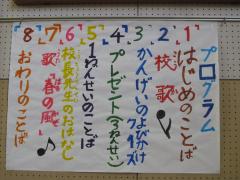 プログラム
1 はじめのことば
2 校歌
3 かんげいのよびかけ
クイズ
4 プレゼント(2ねんせい)
5 1ねんせいのことば
6 校長先生のおはなし
7 歌「春の風」
8 おわりのことば